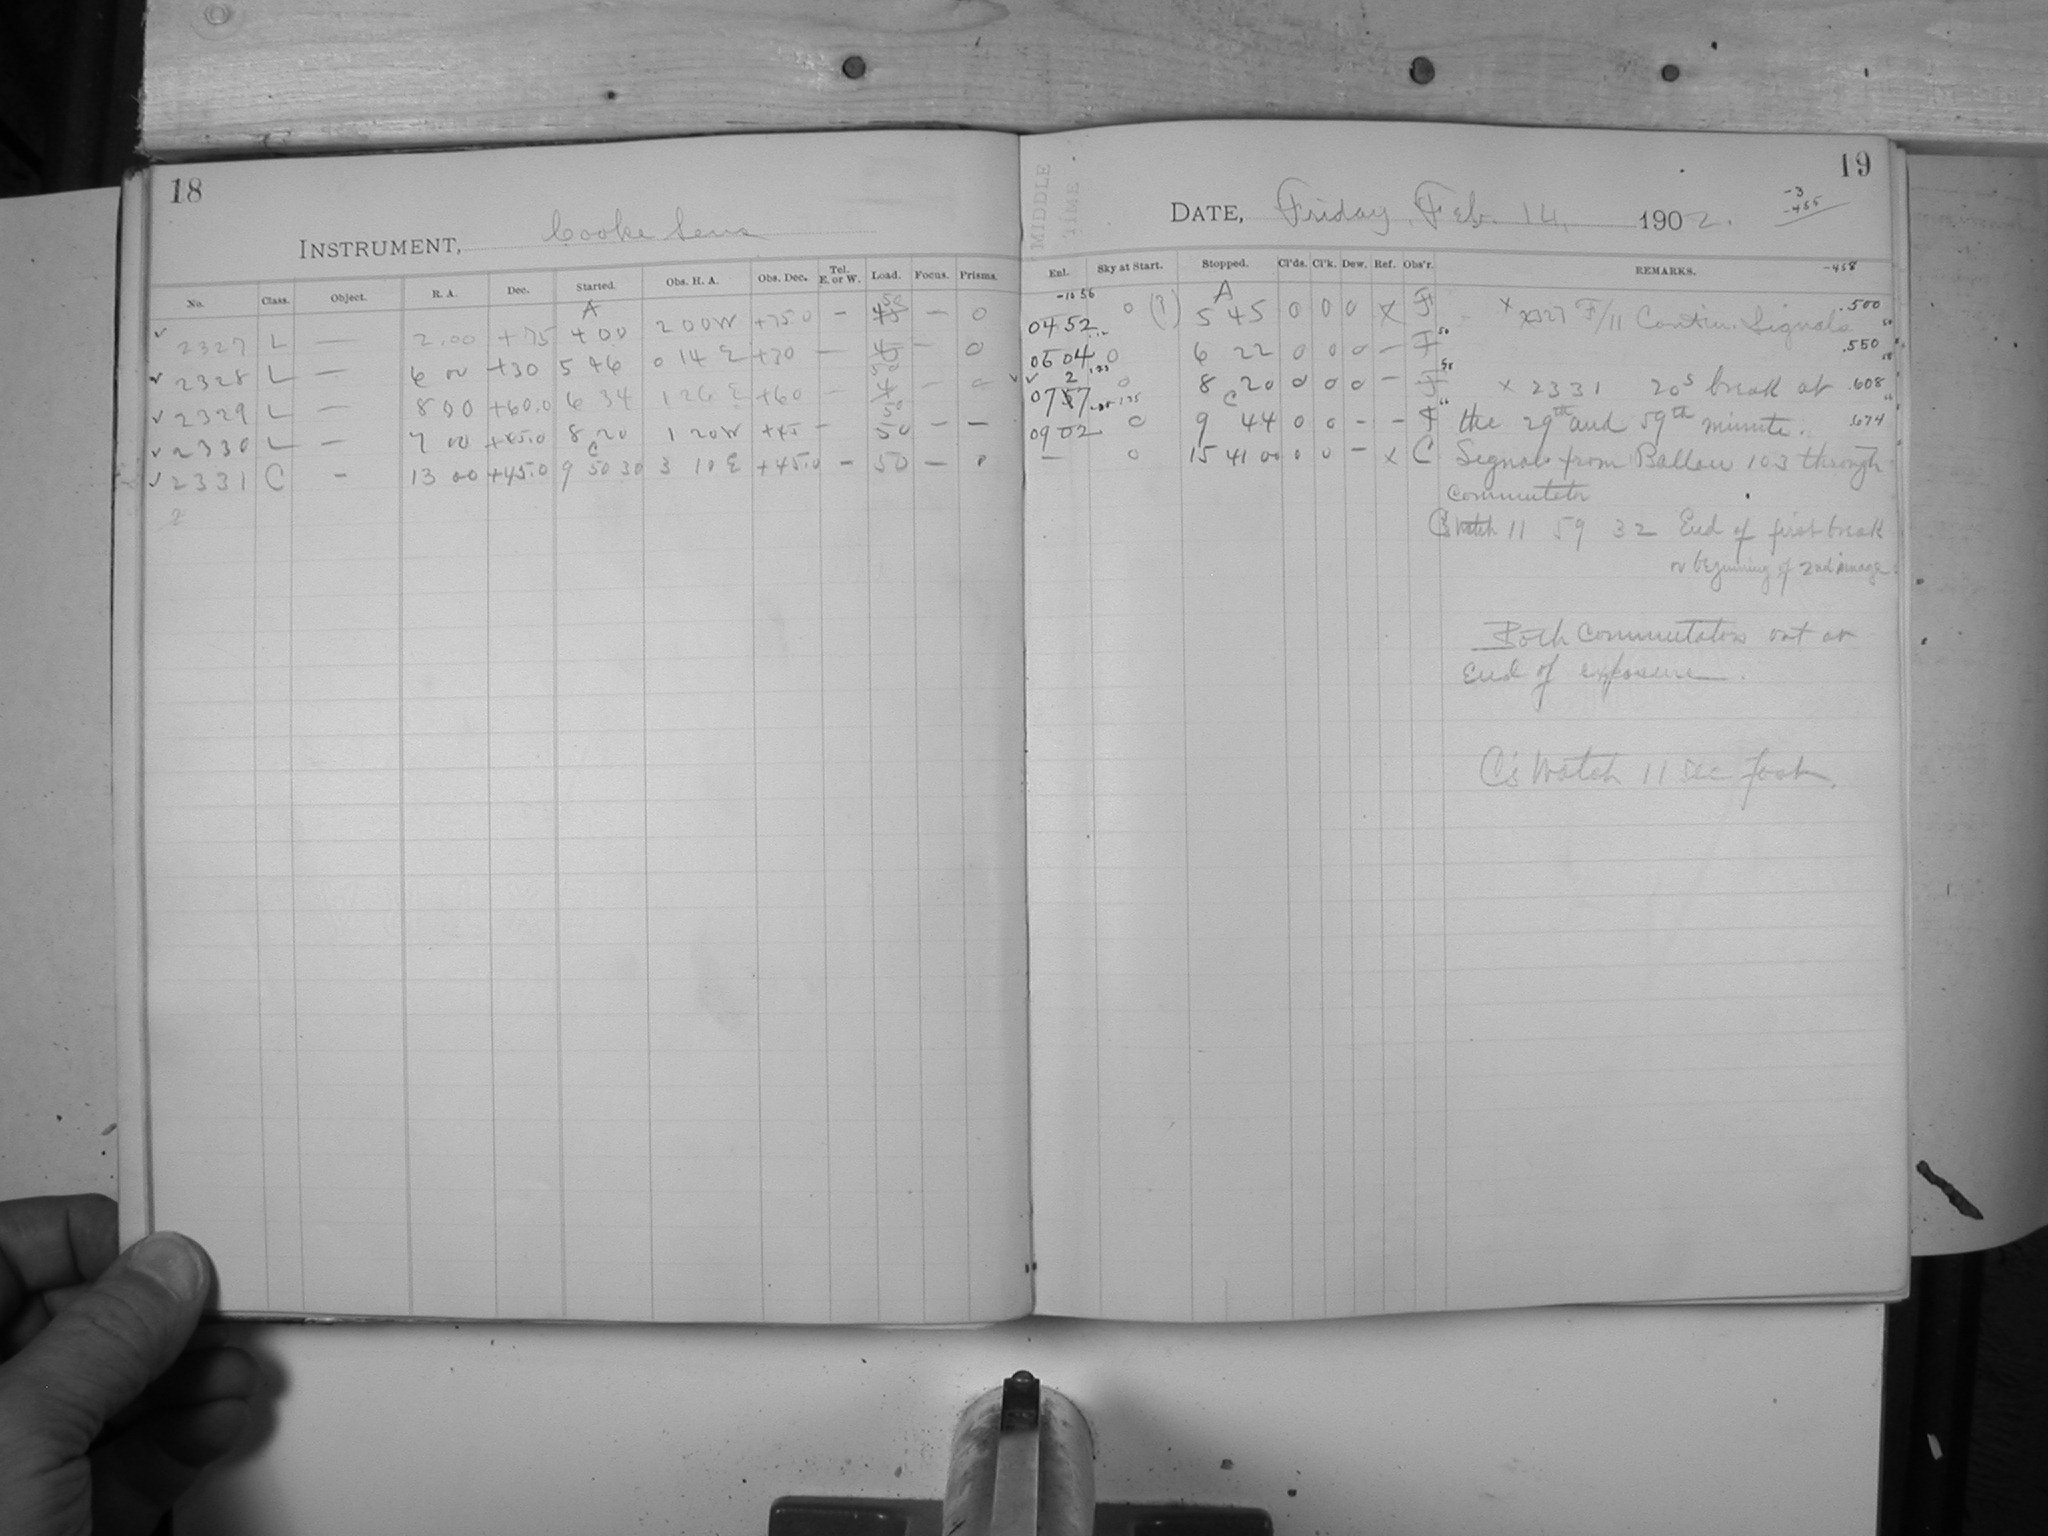 18
INSTRUMENT, Cooke Lens
No. Class. Object. R. A. Dec. Started. Obs. H. A. Obs. Dec. Tel. E. or W. Load. Focus. Prisms.
A
✓ 2327 L — 2.00 +75 4 00 2 00 W +75.0 — 50 — 0
✓ 2328 L — 6 00 +30 5 46 0 14 E +30 — — 0
✓ 2329 L — 8 00 +60.0 6 34 1 26 E +60 — 50 — 0
✓ 2330 L — 7 00 +45.0 8 20 1 20 W +45 — 50 — —
C
✓ 2331 C — 13 00 +45.0 9 50 30 3 10 E +45.0 — 50 — 0
19
MIDDLE TIME
DATE, Friday, Feb. 14, 1902.
-3
-455
Enl. Sky at Start. Stopped. Cl'ds. Cl'k. Dew. Ref. Obs'r. REMARKS. -458
-10 56 A
0452 0 (?) 5 45 0 0 0 X F × 2327 F/11 Contin. Signals .500
0604 0 6 22 0 0 0 — F .550
0727 0 8 20 0 0 0 — F × 2331 20s break at .608
C
0902 0 9 44 0 0 — — F the 29th and 59th minute. .674
— 0 15 41 00 0 0 — X C Signals from Ballou 103 through
commutator
C's watch 11 59 32 End of first break
or beginning of 2nd image
Both commutators out at
End of exposure.
C's Watch 11 sec fast.